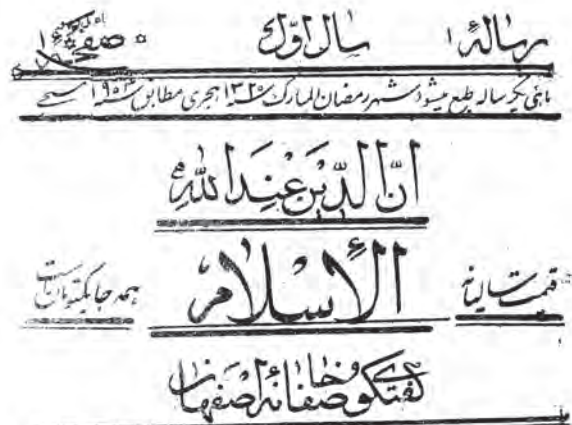 رسالهٔ ۱ سال اوّل صفحه ۱
ماهی یکرساله طبع میشود شهر رمضان المبارک سنه ۱۳۲۰ هجری مطابق سنه ۱۹۰۳ مسیحی
انّ الدّینَ عِنْدَ اللهِ
قیمت سالیانه الاِسْلام همه جا یکتومان است
گفتگوی صفاخانهٔ اصفهان